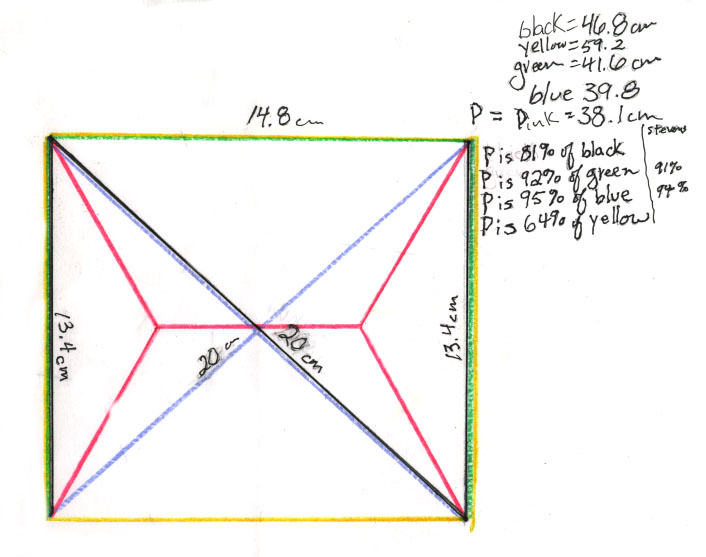 black = 46.8 cm
yellow = 59.2
green = 41.6 cm
blue 39.8
P = Pink = 38.1 cm
14.8 cm
stevens
P is 81% of black
P is 92% of green 91%
P is 95% of blue 94%
P is 64% of yellow
13.4 cm
13.4 cm
20 cm
20 cm